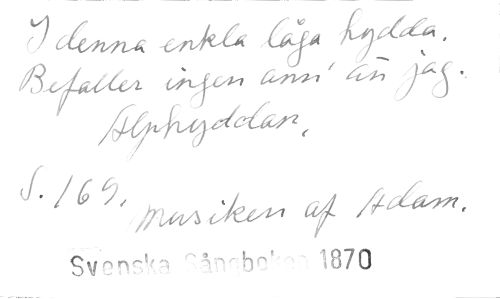 I denna enkla låga hydda.
Befaller ingen ann' än jag.
Alphyddan,
S. 169.
musiken af Adam.
Svenska Sångboken 1870